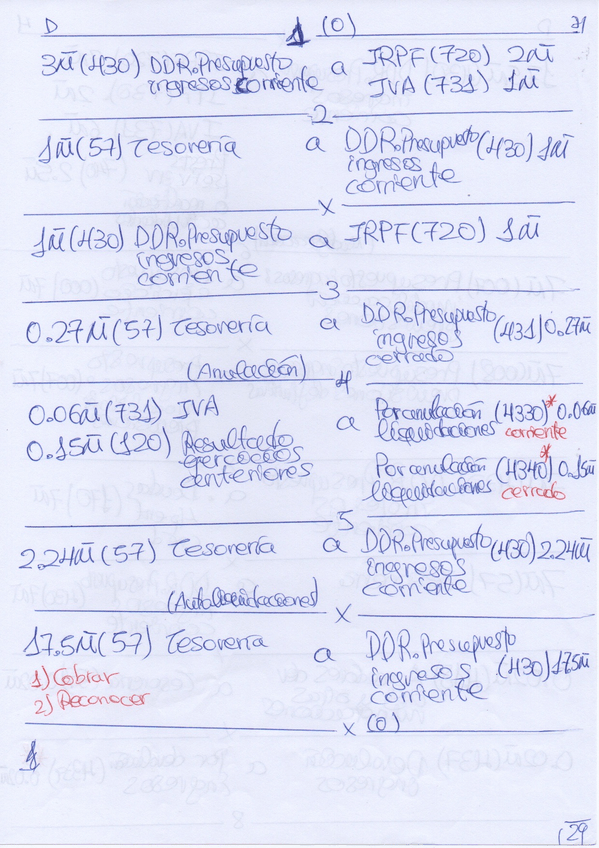 D 1 (0) H
3m̄ (430) DDR. Presupuesto a IRPF (720) 2m̄
ingresos corriente IVA (731) 1m̄
2
1m̄ (57) Tesorería a DDR. Presupuesto (430) 1m̄
ingresos
corriente
x
1m̄ (430) DDR. Presupuesto a IRPF (720) 1m̄
ingresos
corriente
3
0.27m̄ (57) Tesorería a DDR. Presupuesto (431) 0.27m̄
ingresos
cerrado
(Anulación) 4
0.06m̄ (731) IVA a Por anulación (4330)* 0.06m̄
liquidaciones corriente
0.15m̄ (120) Resultado
ejercicios
anteriores
Por anulación (4340)* 0.15m̄
liquidaciones cerrado
5
2.24m̄ (57) Tesorería a DDR. Presupuesto (430) 2.24m̄
ingresos
corriente
(Autoliquidaciones) x
17.5m̄ (57) Tesorería a DDR. Presupuesto (430) 17.5m̄
ingresos
corriente
1) Cobrar
2) Reconocer
x (0)
29